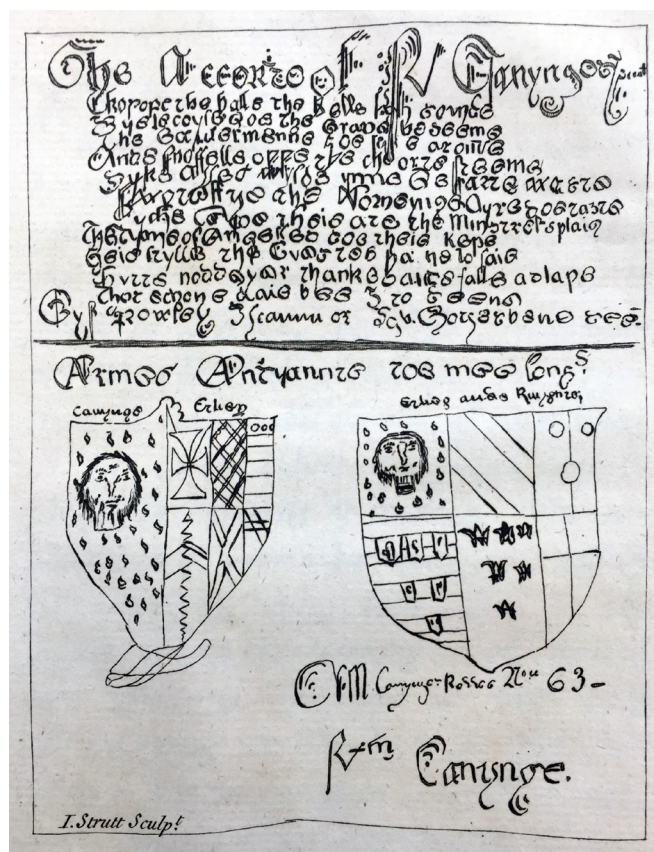 The Accounte of W Canynges Feast
Thorowe the halle the Belle han sounde
Byelecoyle doe the Grave beseeme
The Ealdermenne doe sytte arounde
Ande snoffelle oppe the cheorte steeme
Syke asses wylde ynne desarte waste
Swotelye the Morneynge Ayre doe taste
Syke keene theie ate the Minstrels plaie
The dynne of Angelles doe theie kepe
Heie stylle the Guestes ha ne to saie
Butte nodde yer thankes ande falle aslape
Thos echone daie bee I to deene
Gyf Rowley Iscamm or Tyb. Gorges be ne seene
Armes Antyannte toe mee long.
Canynge Erley
Erley andes Knyghte
Canynge 63
Wm Canynge.
I. Strutt Sculp.t